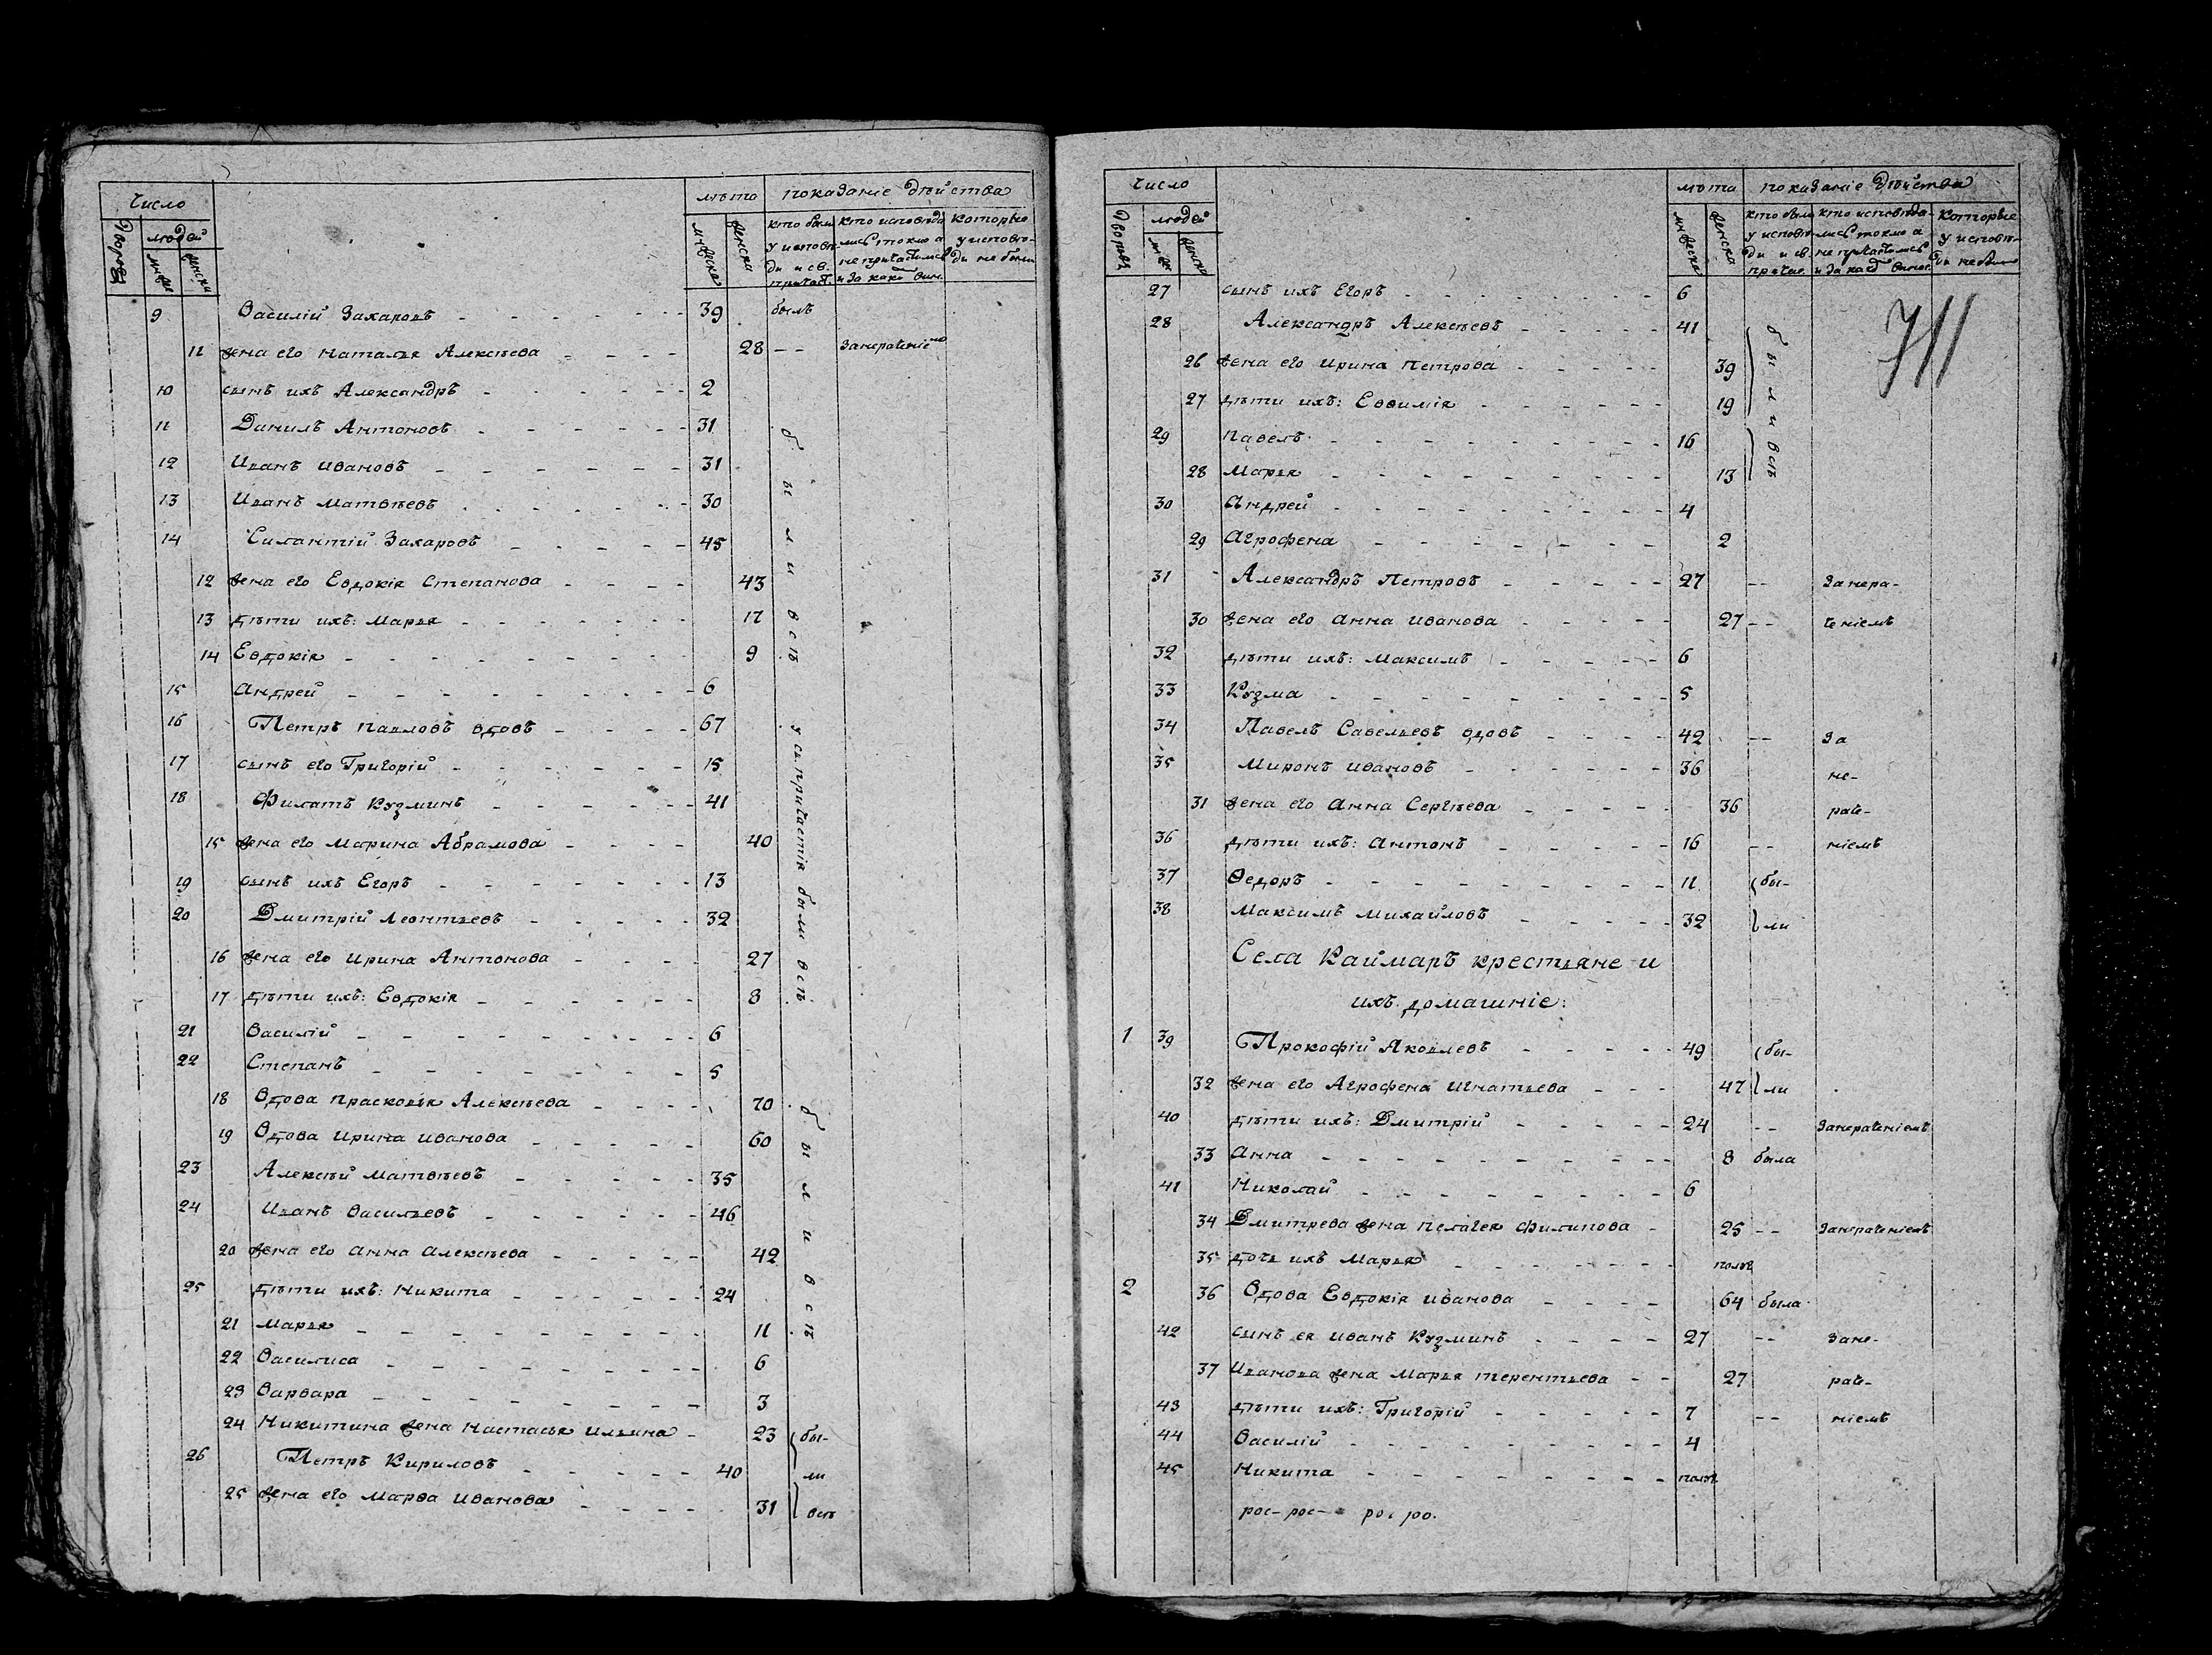 Число
лѣта показаніе дѣйства
дворовъ людей мужеска женска
муж женски
кто были у исповѣди и св. причаст.
кто исповѣдались токмо а не причастились и за какой вин.
которые у исповѣди не были
9 Василій Захаровъ 39 былъ
11 жена его Наталья Алексѣева 28 -- Занераченіемъ
10 сынъ ихъ Александръ 2
11 Данилъ Антоновъ 31
12 Иванъ Ивановъ 31
13 Иванъ Матвѣевъ 30
14 Силантій Захаровъ 45
12 жена его Евдокія Степанова 43
13 дѣти ихъ: Марья 17
14 Евдокія 9
15 Андрей 6
16 Петръ Павловъ вдовъ 67
17 сынъ его Григорій 15
18 Филатъ Кузминъ 41
15 жена его Марина Абрамова 40
19 сынъ ихъ Егоръ 13
20 Дмитрій Леонтьевъ 32
16 жена его Ирина Антонова 27
17 дѣти ихъ: Евдокія 8
21 Василій 6
22 Степанъ 5
18 Вдова Прасковья Алексѣева 70
19 Вдова Ирина Иванова 60
23 Алексѣй Матвѣевъ 35
24 Иванъ Васильевъ 46
20 жена его Анна Алексѣева 42
25 дѣти ихъ: Никита 24
21 Марья 11
22 Василиса 6
23 Варвара 3
24 Никитина жена Настасья Ильина 23 бы-
26 Петръ Кириловъ 40 ли
25 жена его Марѳа Иванова 31 всѣ
были всѣ
у св. причастія были всѣ
были всѣ
Число
лѣта показаніе дѣйства
дворовъ людей мужеска женска
муж женски
кто были у исповѣди и св. причас.
кто исповѣдались токмо а не причастились и за какой виной
которые у исповѣди не были
711
27 сынъ ихъ Егоръ 6
28 Александръ Алексѣевъ 41
26 жена его Ирина Петрова 39
27 дѣти ихъ: Евѳимія 19
29 Павелъ 16
28 Марья 13
были всѣ
30 Андрей 4
29 Агрофена 2
31 Александръ Петровъ 27 -- Занера-
30 жена его Анна Иванова 27 -- ченіемъ
32 дѣти ихъ: Максимъ 6
33 Кузма 5
34 Павелъ Савельевъ вдовъ 42 -- За
35 Миронъ Ивановъ 36 не-
31 жена его Анна Сергѣева 36 раче-
36 дѣти ихъ: Антонъ 16 -- ніемъ
37 Ѳедоръ 11 бы-
38 Максимъ Михайловъ 32 ли
Села Каймаръ крестьяне и
ихъ домашніе:
1 39 Прокофій Яковлевъ 49 бы-
32 жена его Агрофена Игнатьева 47 ли
40 дѣти ихъ: Дмитрій 24 -- Занераченіемъ
33 Анна 8 была
41 Николай 6
34 Дмитрева жена Пелагея Филипова 25 -- Занераченіемъ
35 дочь ихъ Марья полъ
2 36 Вдова Евдокія Иванова 64 была
42 сынъ ея Иванъ Кузминъ 27 -- Зане-
37 Иванова жена Марья Терентьева 27 раче-
43 дѣти ихъ: Григорій 7 -- ніемъ
44 Василій 4
45 Никита полъ
рос- рос- рос ро.